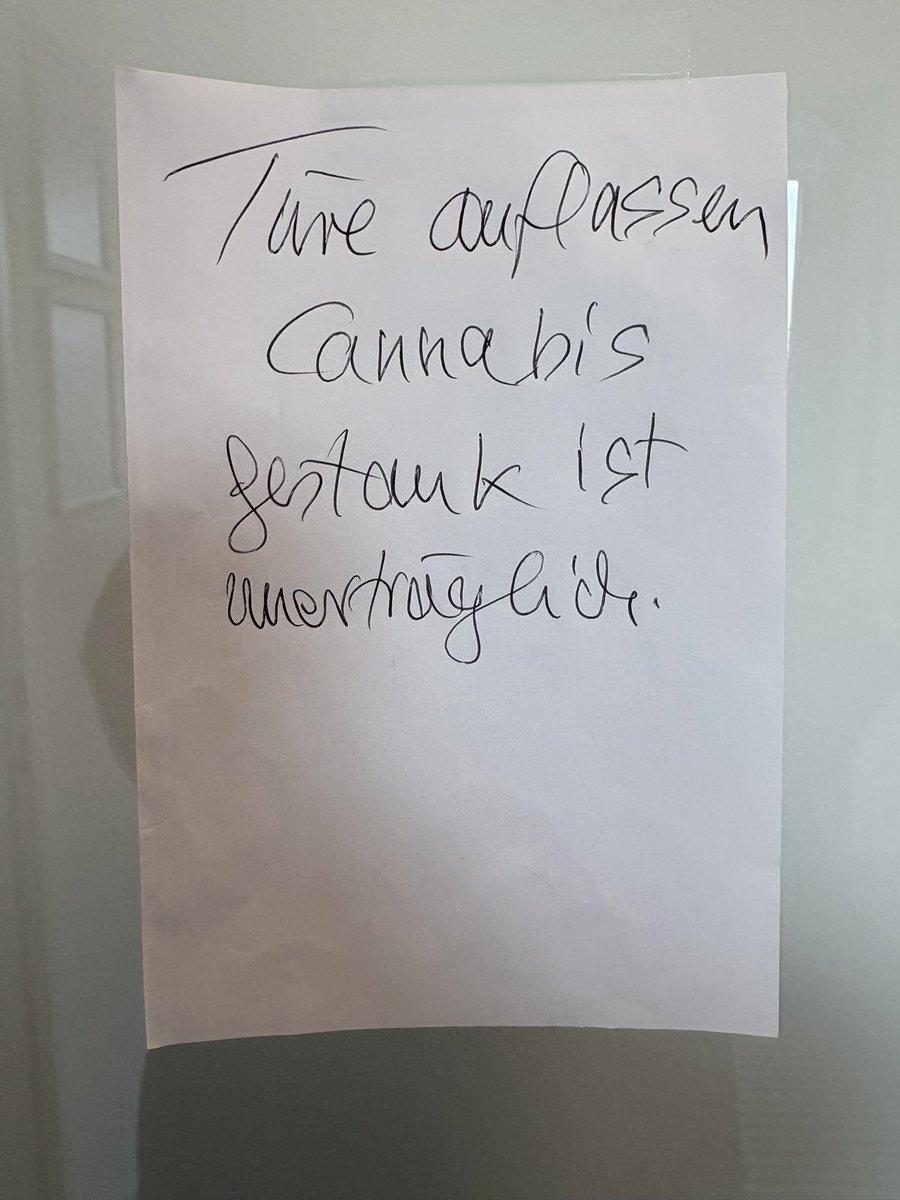 Türe auflassen
Cannabis
gestank ist
unerträglich.